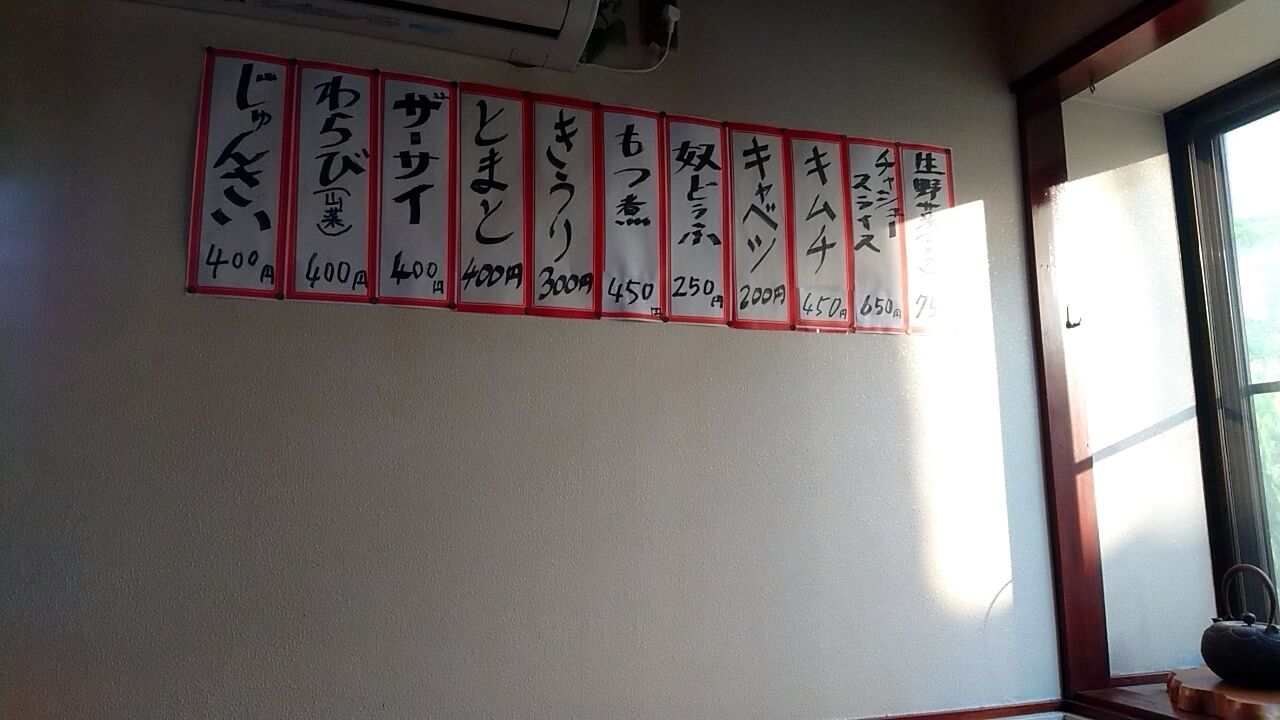 じゅんさい
400円
わらび(山菜)
400円
ザーサイ
400円
とまと
400円
きうり
300円
もつ煮
450円
奴どうふ
250円
キャベツ
200円
キムチ
450円
チャーシュー
スライス
650円
生野菜